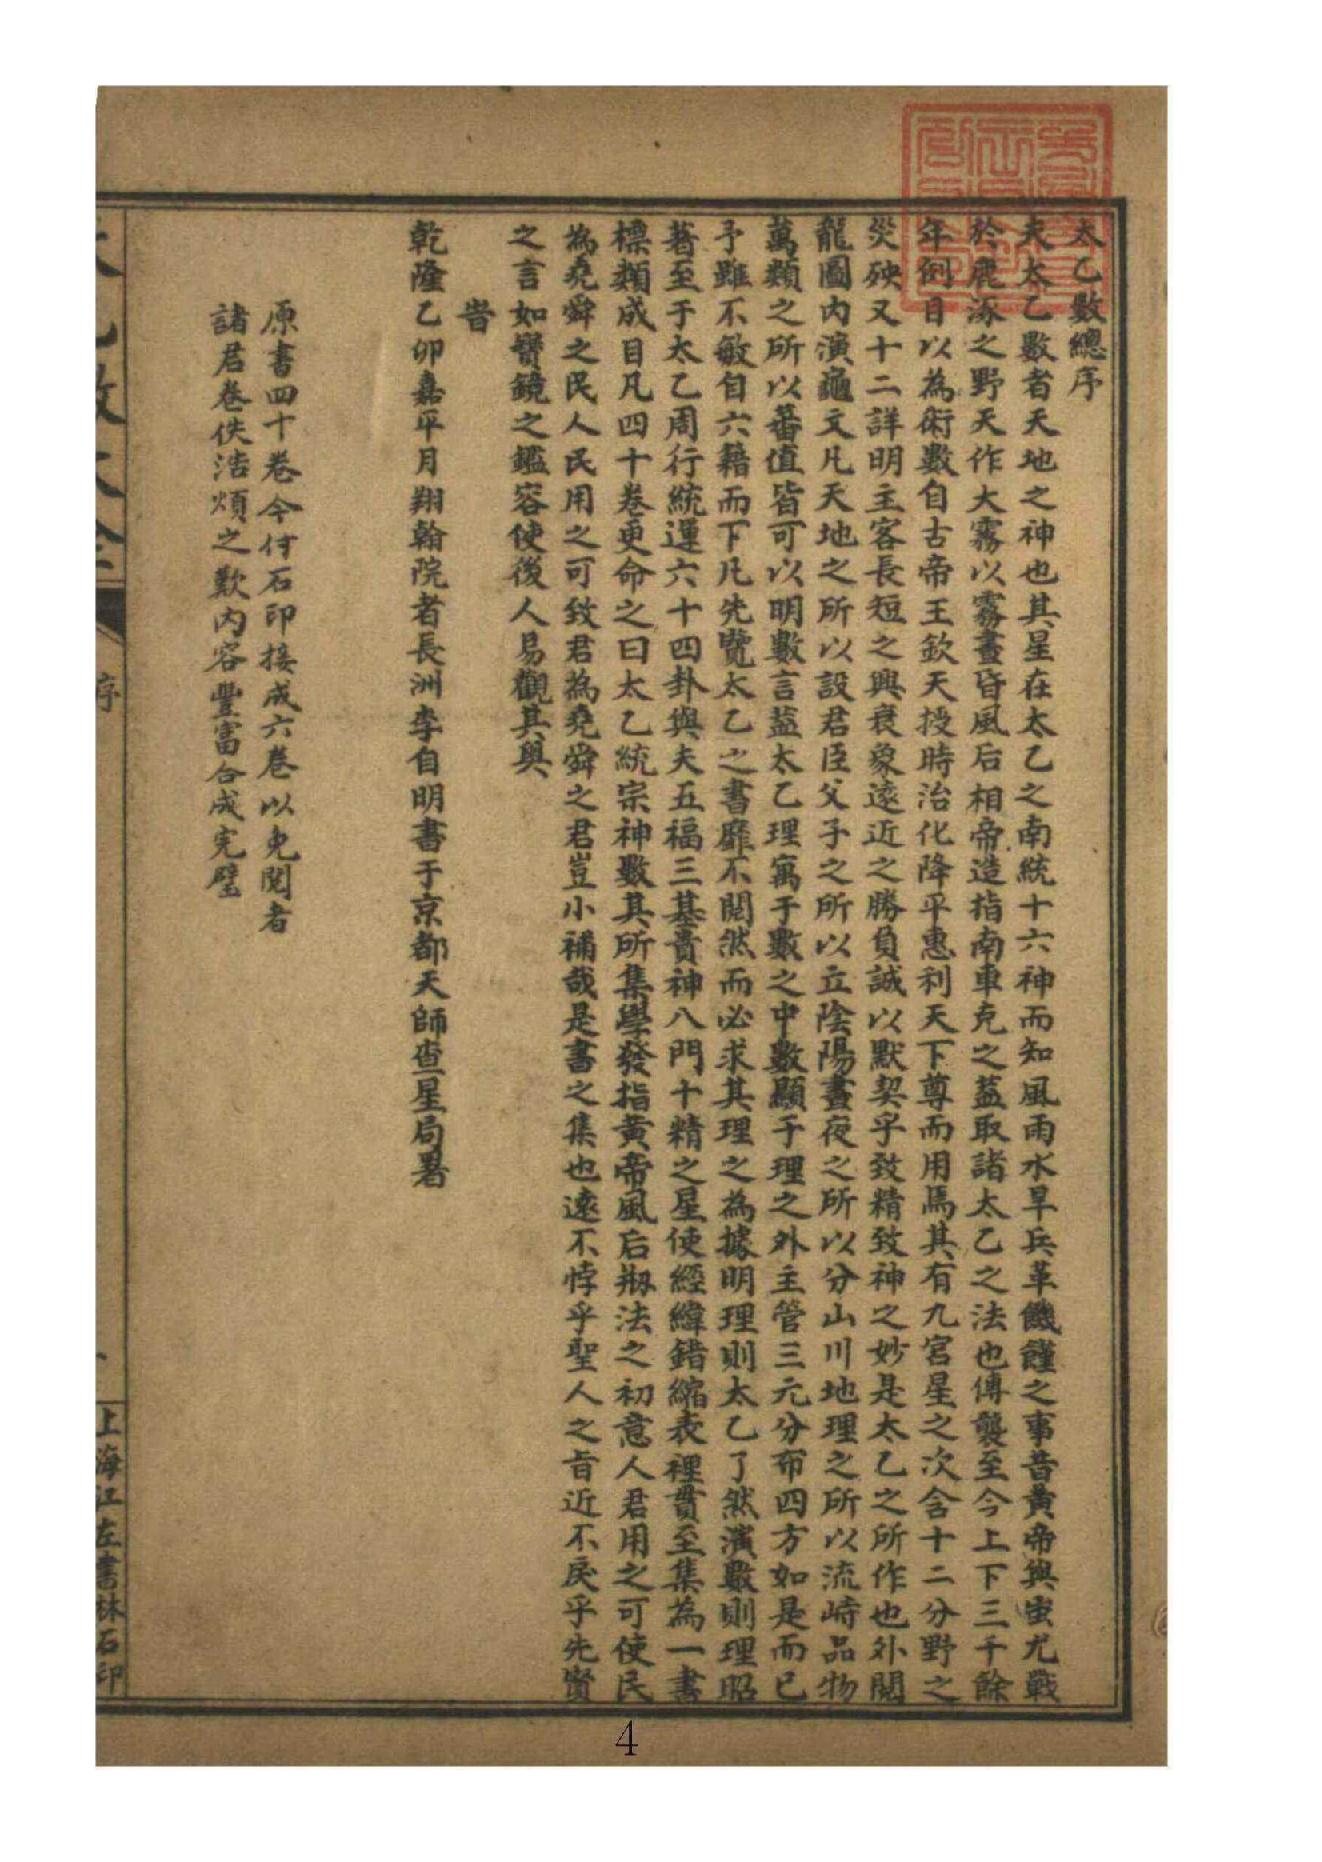 太乙數總序
夫太乙數者天地之神也其星在太乙之南統十六神而知風雨水旱兵革饑饉之事昔黃帝與蚩尤戰
於鹿涿之野天作大霧以霧晝昏風后相帝造指南車克之蓋取諸太乙之法也傳襲至今上下三千餘
年例目以為術數自古帝王欽天授時治化降平惠利天下尊而用焉其有九宮星之次含十二分野之
災殃又十二詳明主客長短之興衰象遠近之勝負誠以默契乎致精致神之妙是太乙之所作也外闊
龍圖內演龜文凡天地之所以設君臣父子之所以立陰陽晝夜之所以分山川地理之所以流峙品物
萬類之所以蕃值皆可以明數言蓋太乙理寓于數之中數顯于理之外主管三元分布四方如是而已
予雖不敏自六籍而下凡先覽太乙之書靡不閱然而必求其理之為據明理則太乙了然演數則理昭
著至于太乙周行統運六十四卦與夫五福三基貴神八門十精之星使經緯錯縮表裡貫至集為一書
標類成目凡四十卷更命之曰太乙統宗神數其所集學發指黃帝風后刱法之初意人君用之可使民
為堯舜之民人民用之可致君為堯舜之君豈小補哉是書之集也遠不悖乎聖人之旨近不戾乎先賢
之言如寶鏡之鑑容使後人易觀其與
旹
乾隆乙卯嘉平月翔翰院者長洲李自明書于京都天師查星局署
原書四十卷今付石印接成六卷以免閱者
諸君卷佚浩煩之歎內容豐富合成完璧
太乙數大全
序
上海江左書林石印
4